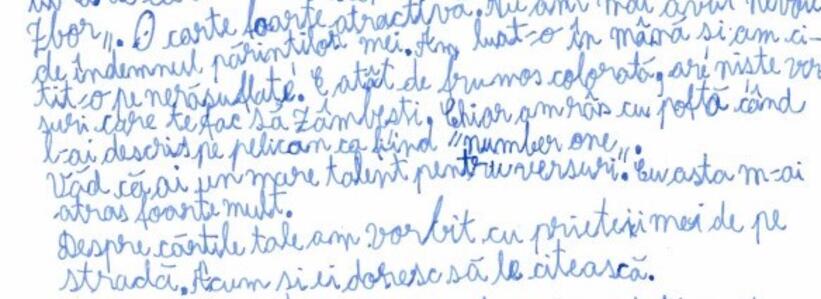 Zbor„. O carte foarte atractivă. Nu am mai avut nevoie
de îndemnul părinților mei. Am luat-o în mână și am ci-
tit-o pe nerăsuflate. E atât de frumos colorată, are niște ver
suri care te fac să zâmbești. Chiar am râs cu poftă când
l-ai descris pe pelican ca fiind "number one„.
Văd că ai un mare talent pentru versuri. Cu asta m-ai
atras foarte mult.
Despre cărțile tale am vorbit cu prietenii mei de pe
stradă. Acum și ei doresc să le citească.